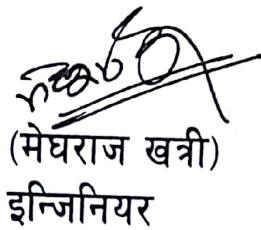 (मेघराज खत्री)
इन्जिनियर